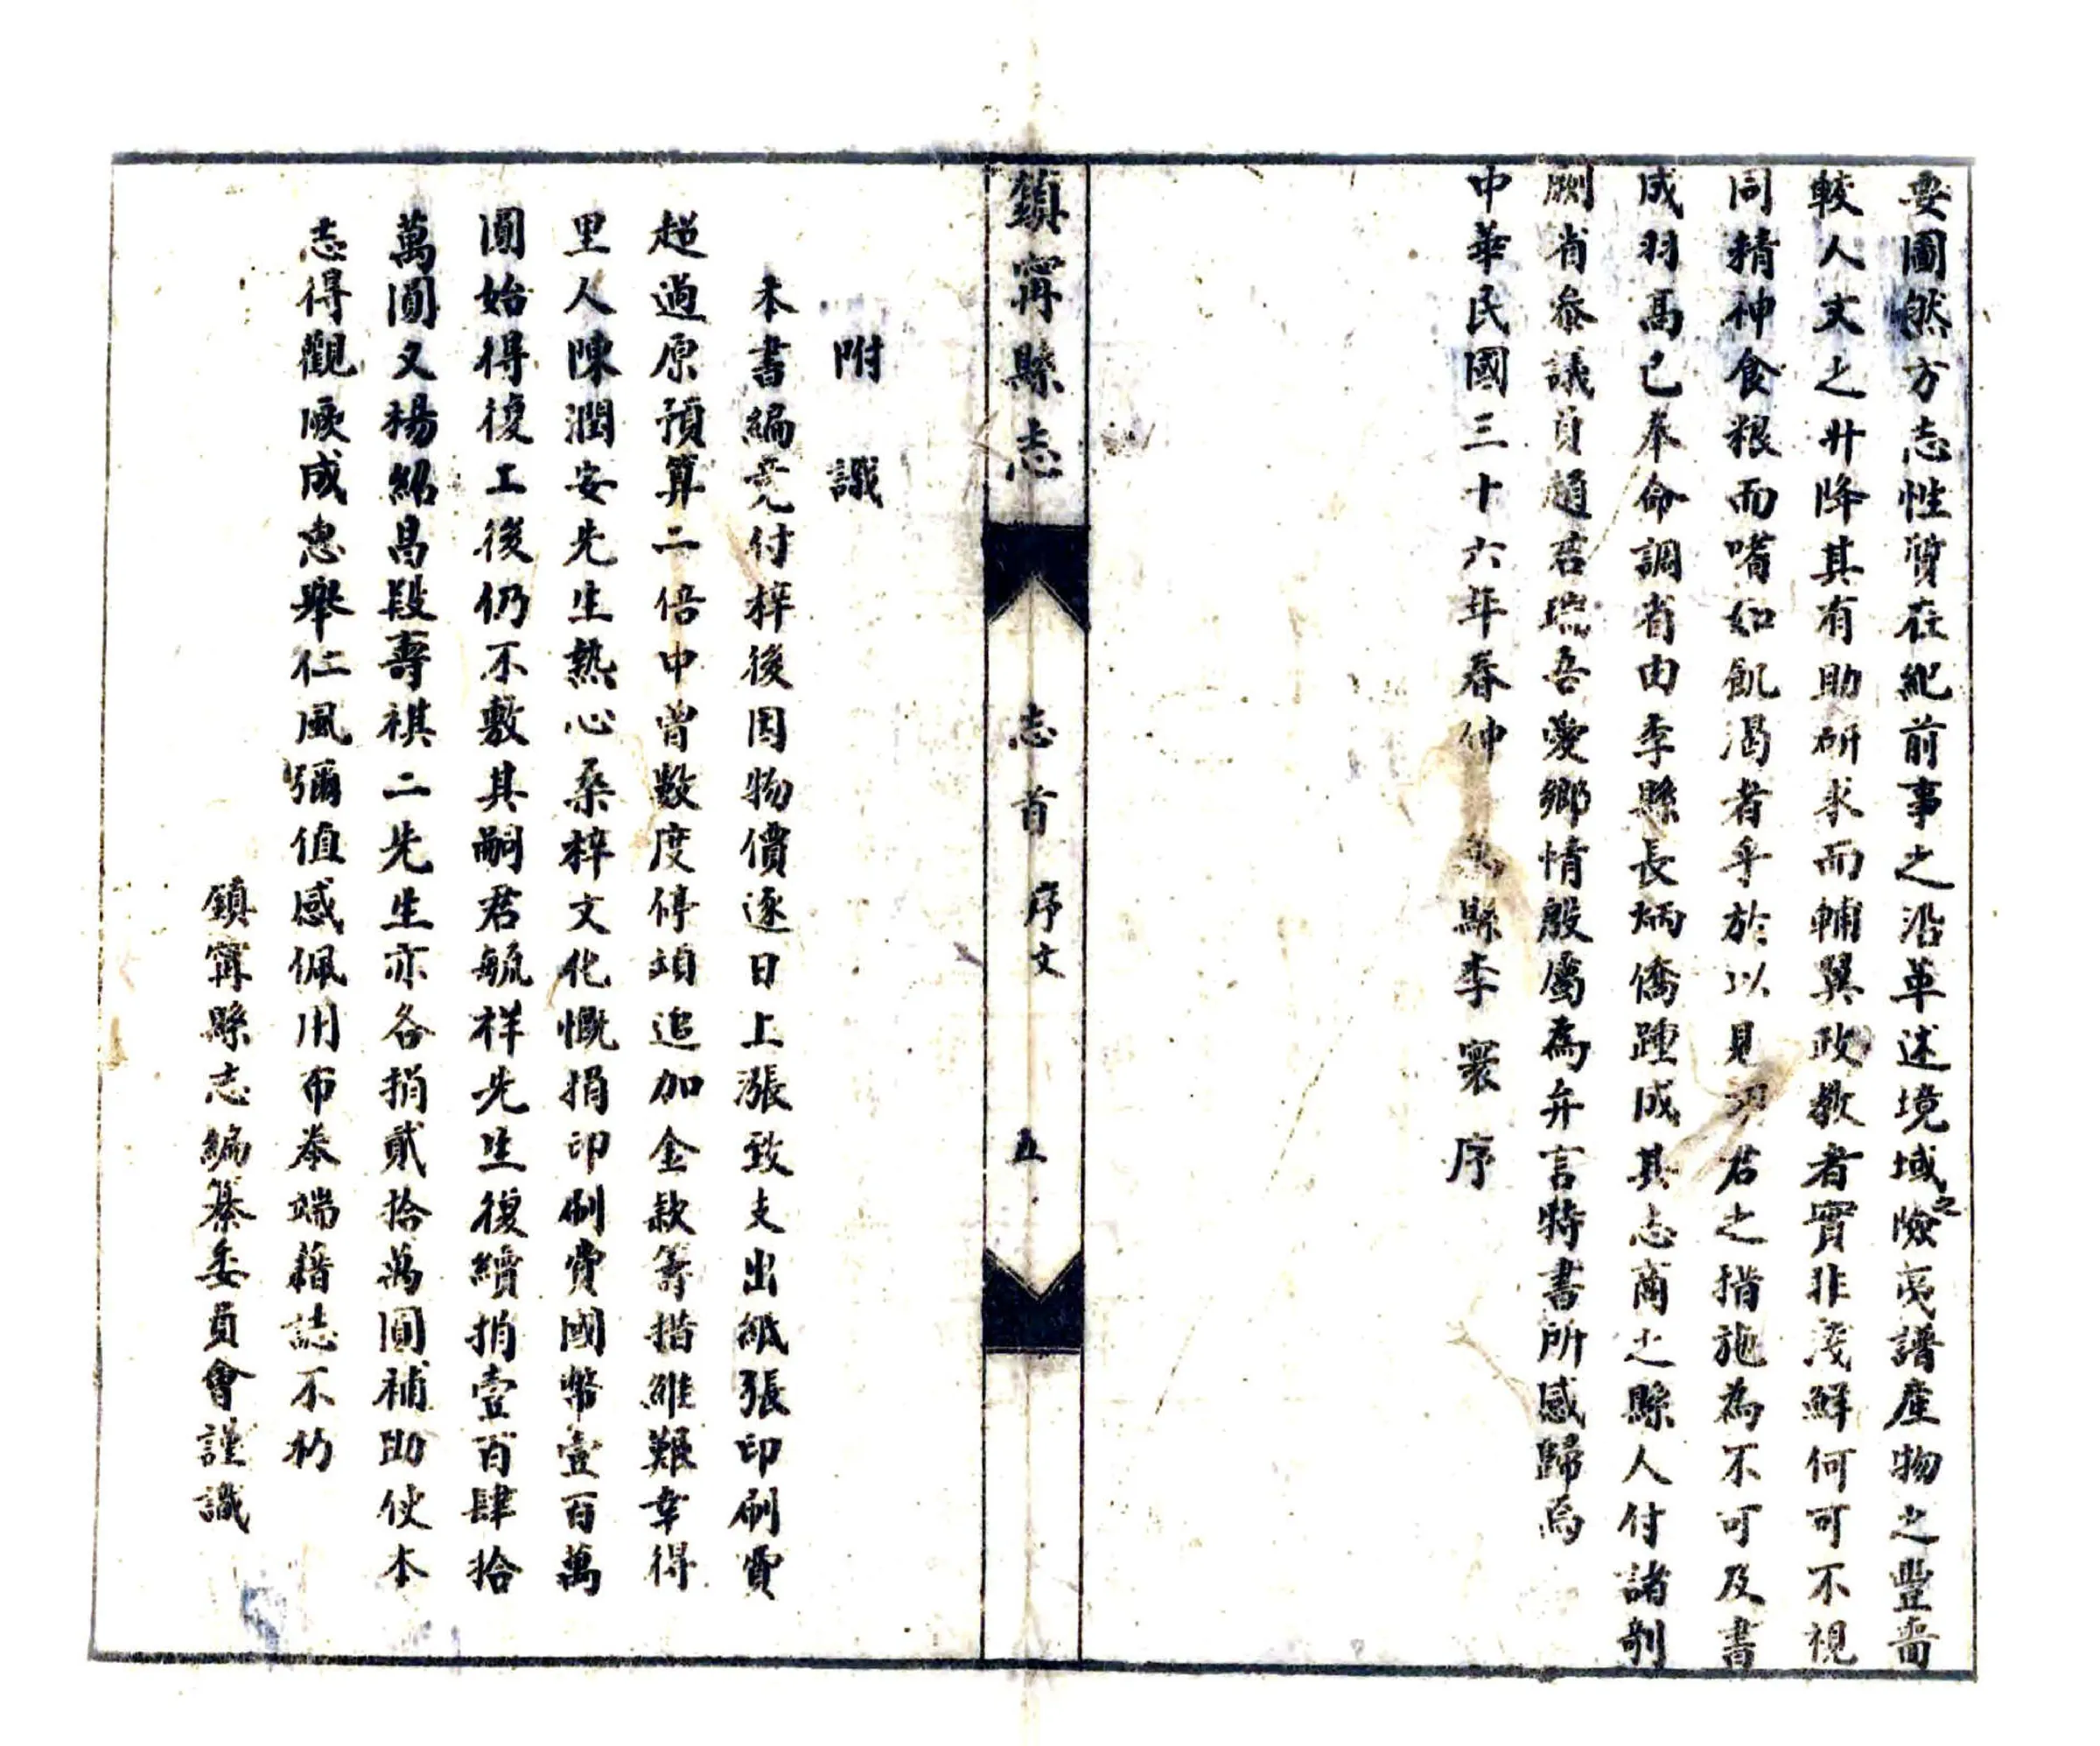 要圖然方志性質在紀前事之沿革述境域之險夷譜產物之豐嗇
較人文之升降其有助研求而輔翼政教者實非淺鮮何可不視
同精神食粮而嗜如飢渴者乎於以見胡君之措施為不可及書
成羽高已奉命調省由李縣長炳僑踵成其志商之縣人付諸剞
劂省叅議員趙君瑞吾愛鄉情殷屬為弁言特書所感歸焉
中華民國三十六年春仲 縣李寰序
鎮寧縣志
志首
序文
五
附識
本書編竞付梓後因物價逐日上漲致支出紙張印刷費
超過原預算二倍中曾數度停頓追加金款籌措維艱幸得
里人陳潤安先生熱心桑梓文化慨捐印刷費國幣壹百萬
圓始得復工後仍不敷其嗣君毓祥先生復續捐壹百肆拾
萬圓又楊紹昌段壽祺二先生亦各捐貳拾萬圓補助使本
志得觀厥成惠舉仁風彌值感佩用布卷端藉誌不朽
鎮寧縣志編纂委員會謹識